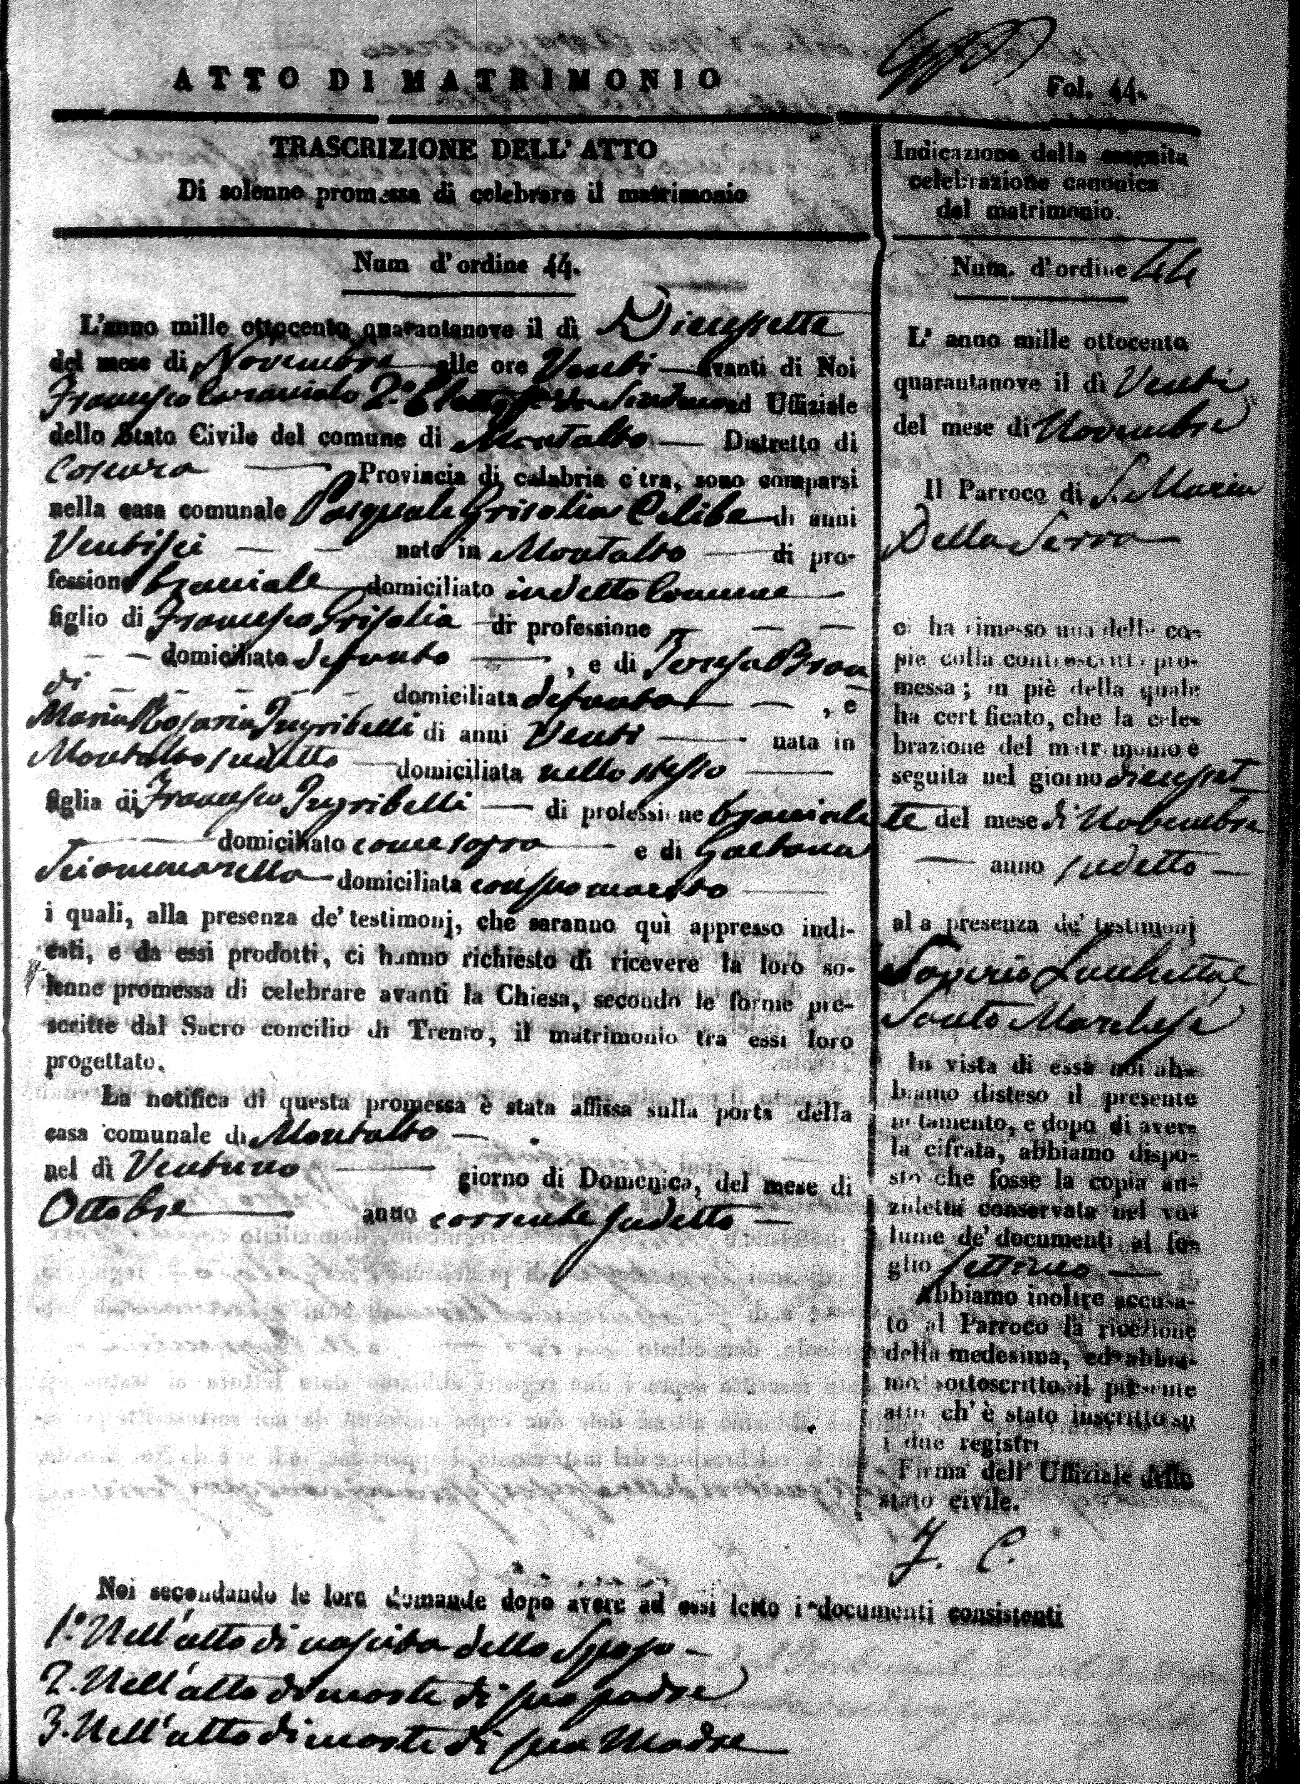 ATTO DI MATRIMONIO
Fol. 44.
TRASCRIZIONE DELL' ATTO
Di solenne promessa di celebrare il matrimonio
Num d'ordine 44.
L'anno mille ottocento quarantanove il dì Diecessette
del mese di Novembre alle ore Venti — avanti di Noi
Francesco 2.° Eletto ed Uffiziale
dello Stato Civile del comune di Montalto — Distretto di
Cosenza — Provincia di calabria citra, sono comparsi
nella casa comunale Pasquale Grisolia Celibe di anni
Ventisei — — nato in Montalto — di pro-
fessione bracciale domiciliato in detto Comune —
figlio di Francesco Grisolia — di professione — — —
— — domiciliato defunto — , e di Teresa Bran
di — — — — — domiciliata defunta — — , e
Maria Rosaria Ingribelli di anni Venti — nata in
Montalto sudetto — domiciliata nello stesso —
figlia di Francesco Ingribelli — di professione bracciale
— domiciliato come sopra — e di Gaetana
Sciammarella — domiciliata con suo marito —
i quali, alla presenza de' testimonj, che saranno quì appresso indi-
cati, e da essi prodotti, ci hanno richiesto di ricevere la loro so-
lenne promessa di celebrare avanti la Chiesa, secondo le forme pre-
scritte dal Sacro concilio di Trento, il matrimonio tra essi loro
progettato.
La notifica di questa promessa è stata affissa sulla porta della
casa comunale di Montalto —
nel dì Ventuno — giorno di Domenica, del mese di
Ottobre — anno corrente sudetto —
Indicazione della seguita
celebrazione canonica
del matrimonio.
Num. d'ordine 44
L' anno mille ottocento
quarantanove il dì Venti
del mese di Novembre
Il Parroco di S. Maria
Della Serra —
ci ha rimesso una delle co-
pie colla controscritta pro-
messa; in piè della quale
ha certificato, che la cele-
brazione del matrimonio è
seguita nel giorno diecisset
te del mese di Novembre
— anno sudetto —
alla presenza de' testimonj
Saverio Lucchetta e
Santo Marchese
In vista di essa noi ab-
biamo disteso il presente
notamento, e dopo di avere
la cifrata, abbiamo dispo-
sto che fosse la copia an-
zidetta conservata nel vo-
lume de' documenti al fo-
glio
Abbiamo inoltre accusa-
to al Parroco la ricezione
della medesima, ed abbia-
mo sottoscritto il presente
atto ch' è stato inscritto su
i due registri
Firma dell' Uffiziale dello
stato civile.
F. C.
Noi secondando le loro domande dopo avere ad essi letto i documenti consistenti
1.° Nell'atto di nascita dello Sposo —
2. Nell'atto di morte di suo padre
3. Nell'atto di morte di sua Madre —